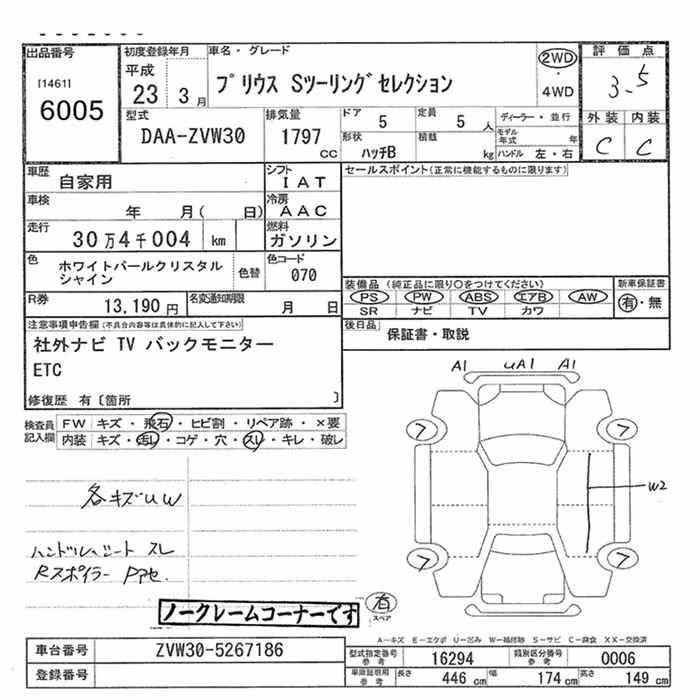 出品番号
[1461]
6005
初度登録年月
平成
23 3月
車名・グレード
プリウス Sツーリングセレクション
2WD
・
4WD
評価点
3.5
型式
DAA-ZVW30
排気量
1797
CC
ドア
5
定員
5 人
ディーラー・並行
形状
ハッチB
積載
kg
モデル年式 年
ハンドル 左・右
外装 内装
C C
車歴
自家用
シフト
IAT
セールスポイント(正常に機能するものに限ります)
車検
年 月( 日)
冷房
AAC
走行
30万4千004 km
燃料
ガソリン
色
ホワイトパールクリスタル
シャイン
色替
色コード
070
装備品(純正品に限り○をつけてください)
PS PW ABS エアB AW
SR ナビ TV カワ
新車保証書
有・無
R券
13,190 円
名変通知期限
月 日
後日品
保証書・取説
注意事項申告欄(不具合内容等は具体的に記入して下さい)
社外ナビ TV バックモニター
ETC
修復歴 有〔箇所 〕
検査員
記入欄
FW キズ・飛石・ヒビ割・リペア跡・×要
内装 キズ・汚レ・コゲ・穴・スレ・キレ・破レ
A1 UA1 A1
フ フ
W2
フ フ
各キズUW
ハンドル、シート スレ
Rスポイラー PアセT
ノークレームコーナーです
有
スペア
A-キズ E-エクボ U-凹み W-補修跡 S-サビ C-腐食 XX-交換済
車台番号
ZVW30-5267186
登録番号
型式指定番号
参考
16294
類別区分番号
参考
0006
車庫証明用
参考
長さ
446 cm
幅
174 cm
高さ
149 cm